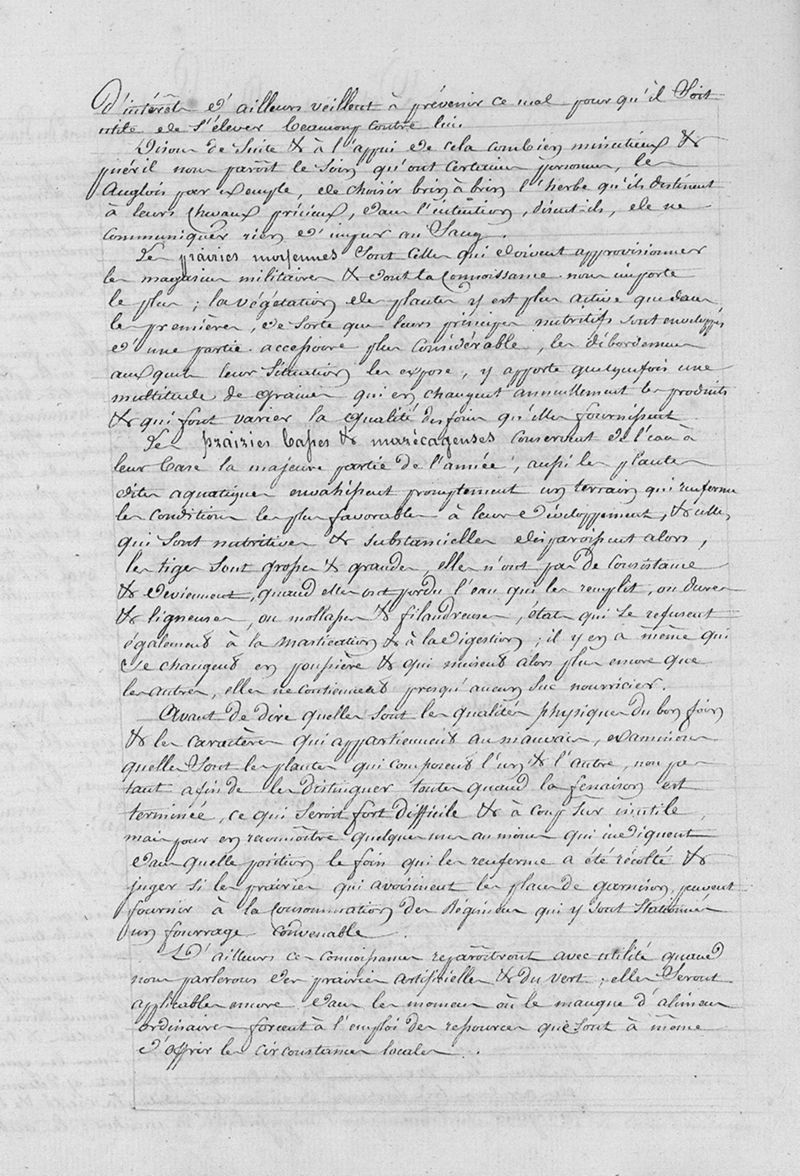 D'intérêt & d'ailleurs veillent à prévenir ce mal pour qu'il soit
utile de s'élever beaucoup contre lui.
Disons de suite & à l'appui de cela combien minutieux &
puéril nous paroît le soin qu'ont certaines personnes, les
Anglois par exemple, de choisir brin à brin l'herbe qu'ils destinent
à leurs chevaux précieux, dans l'intention, disent-ils, de ne
communiquer rien d'impur au sang.
Les prairies moyennes sont celles qui doivent approvisionner
les magasins militaires & dont la connoissance nous importe
le plus ; la végétation des plantes y est plus active que dans
les premières, de sorte que leurs principes nutritifs sont enveloppés
d'une partie accessoire plus considérable, les débordemens
auxquels leur situation les expose, y apporte quelquefois une
multitude de graines qui en changent annuellement les produits
& qui font varier la qualité des foins qu'elles fournissent.
Les prairies basses & marécageuses conservent de l'eau à
leur base la majeure partie de l'année, aussi les plantes
dites aquatiques envahissent promptement un terrain qui renferme
les conditions les plus favorables à leur développement, & celles
qui sont nutritives & substancielles disparoissent alors,
les tiges sont grosses & grandes, elles n'ont pas de consistance
& deviennent, quand elles ont perdu l'eau qui les remplit, ou dures
& ligneuses, ou mollasses & filandreuses, état qui se refusent
également à la mastication & à la digestion ; il y en a même qui
se changent en poussière & qui nuisent alors plus encore que
les autres, elles ne contiennent presqu'aucun suc nourricier.
Avant de dire quelles sont les qualités physiques du bon foin
& les caractères qui appartiennent au mauvais, examinons
quelles sont les plantes qui composent l'un & l'autre, non pas
tant afin de les distinguer toutes quand la fenaison est
terminée, ce qui seroit fort difficile & à coup sûr inutile,
mais pour en reconnoître quelques unes au moins qui indiquent
dans quelle position le foin qui les renferme a été récolté &
juger si les prairies qui avoisinent les places de garnison, peuvent
fournir à la consommation des Régimens qui y sont stationnés
un fourrage convenable.
D'ailleurs ces connoissances reparoîtront avec utilité quand
nous parlerons des prairies artificielles & du vert ; elles seront
applicables encore dans les momens où le manque d'alimens
ordinaires forcent à l'emploi des ressources que sont à même
d'offrir les circonstances locales.